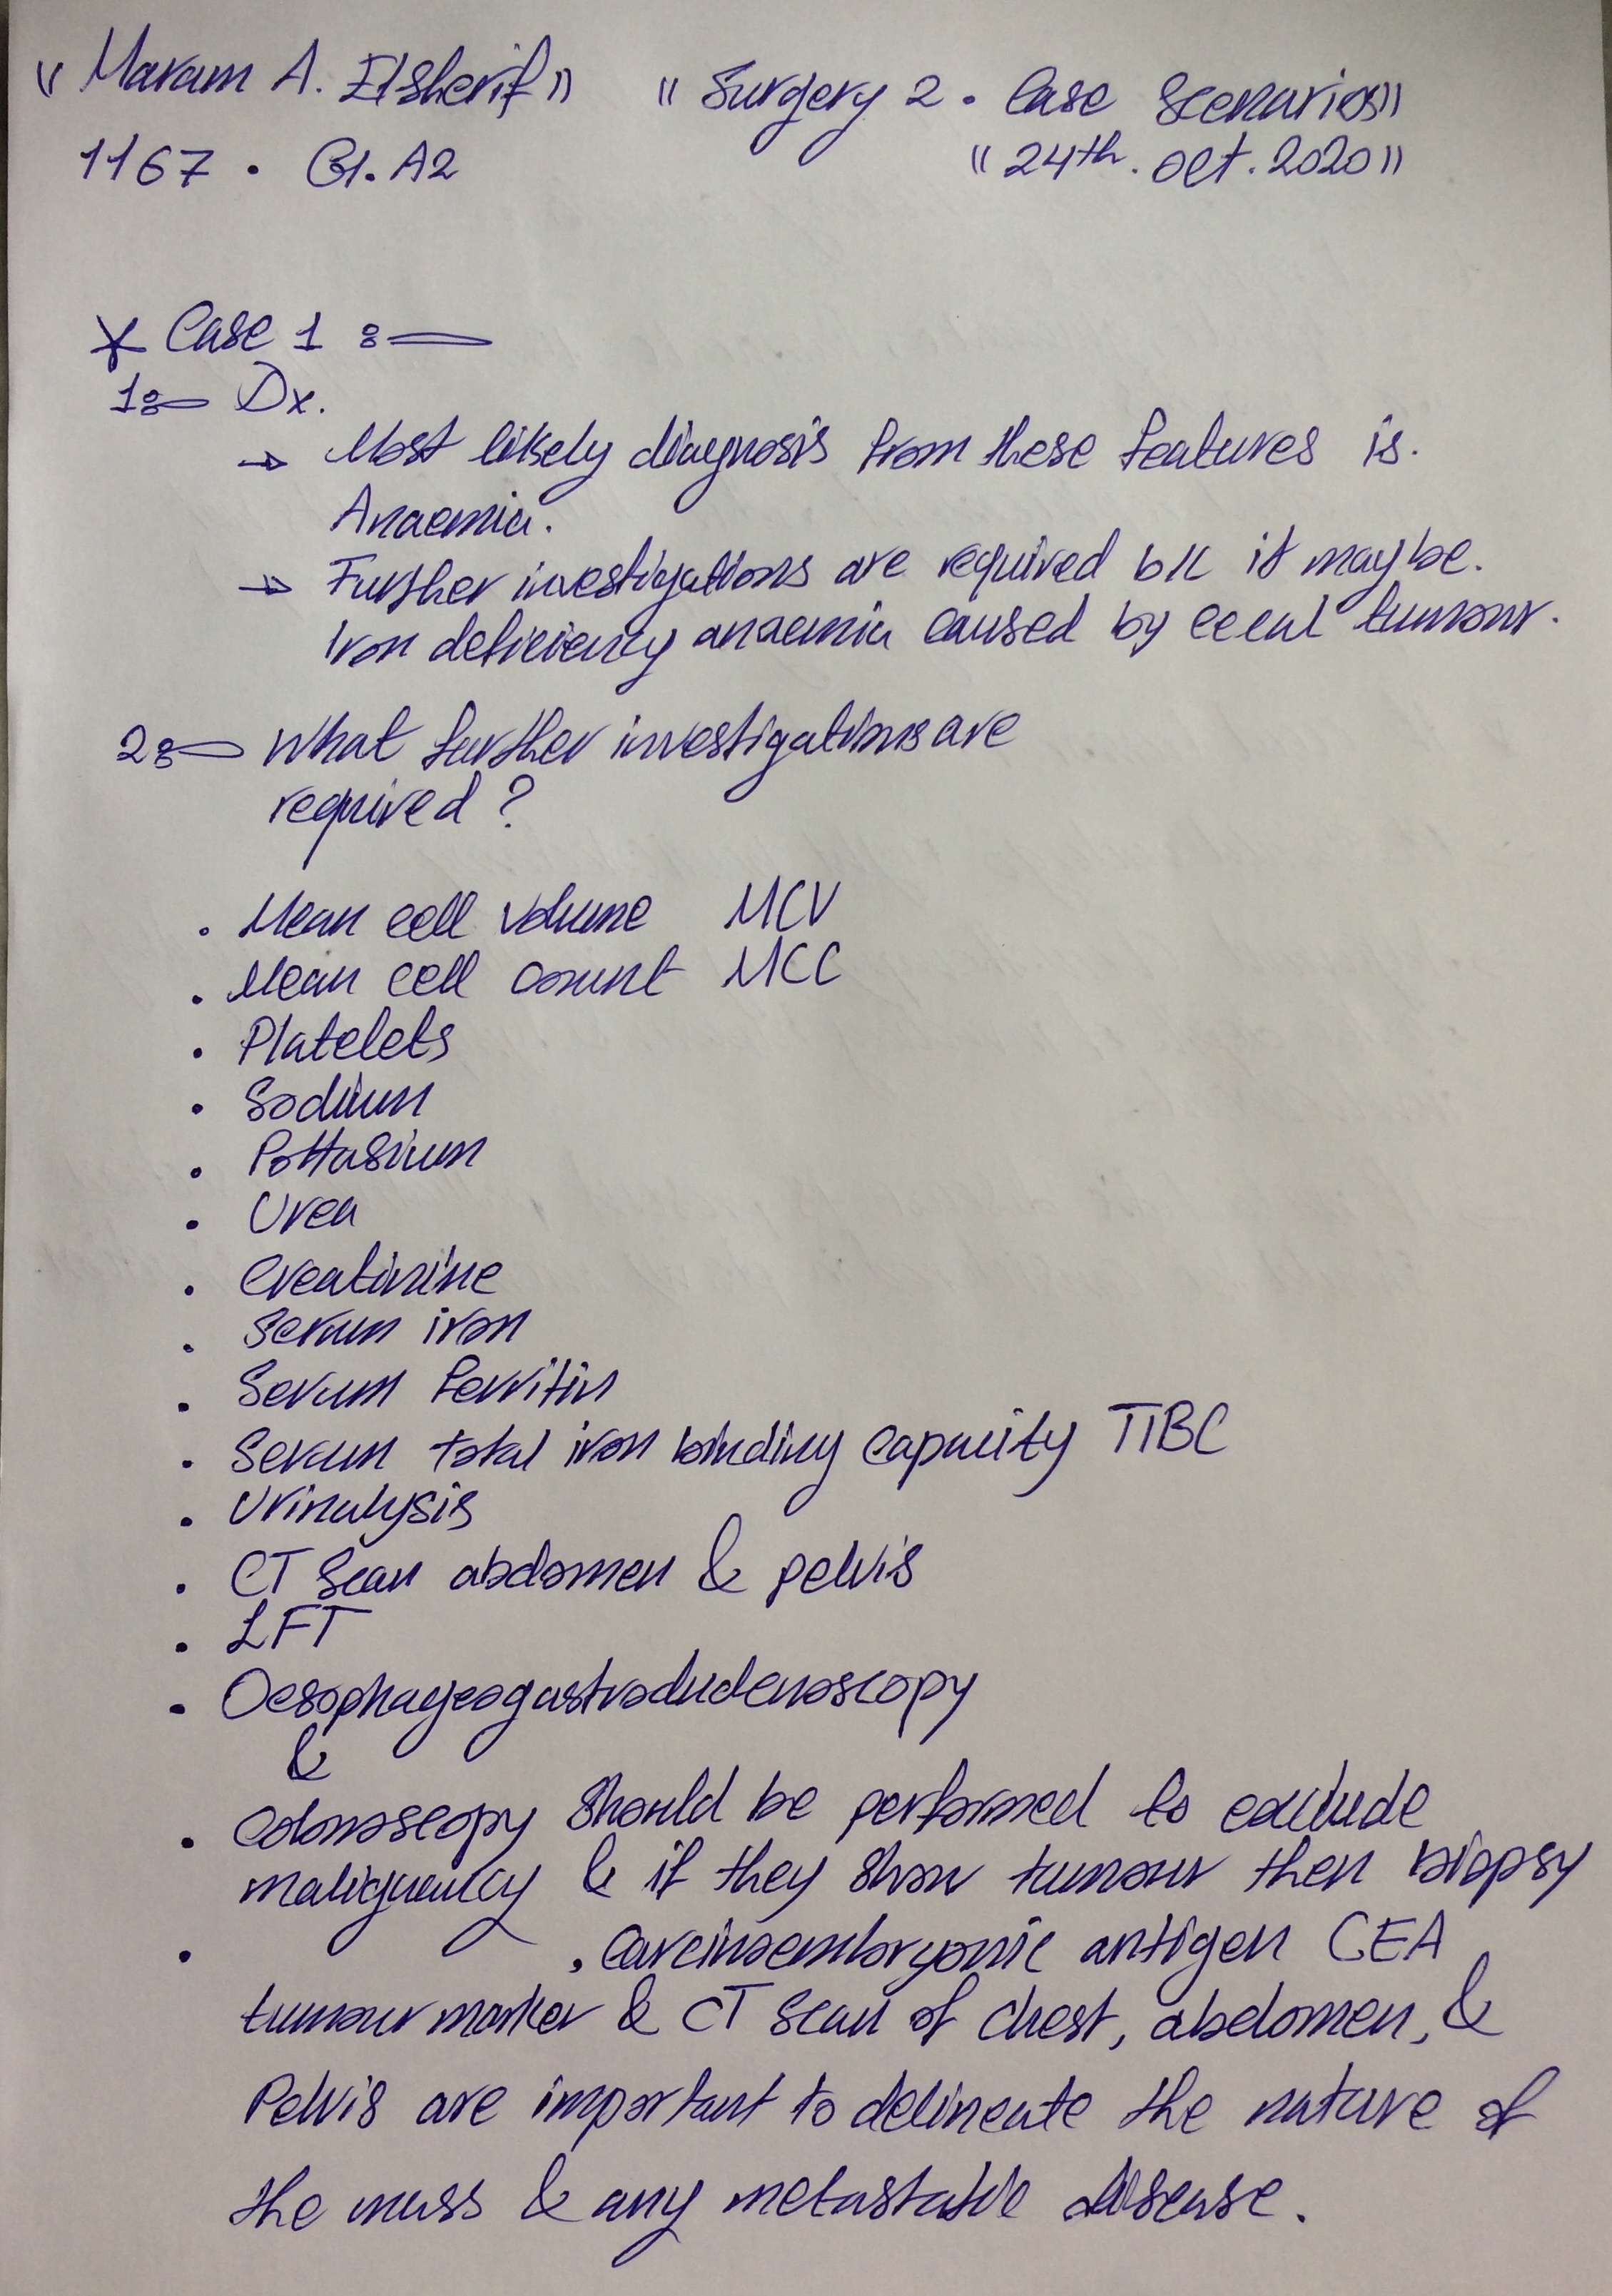 "Maram A. Elsherif" "Surgery 2 . Case Scenarios"
1167 . G1. A2 "24th. Oct. 2020"
* Case 1 :-
1:- Dx.
→ Most likely diagnosis from these features is.
Anaemia.
→ Further investigations are required b/c it may be.
Iron deficiency anaemia caused by cecal tumour.
2:- What further investigations are
required ?
. Mean cell volume MCV
. Mean cell count MCC
. Platelets
. Sodium
. Pottasium
. Urea
. Creatinine
. Serum iron
. Serum ferritin
. Serum total iron binding capacity TIBC
. Urinalysis
. CT scan abdomen & pelvis
. LFT
. Oesophageogastrodudenoscopy
&
. Colonoscopy should be performed to exclude
malignancy & if they show tumour then biopsy
. , Carcinoembryonic antigen CEA
tumour marker & CT scan of chest, abdomen, &
Pelvis are important to delineate the nature of
the mass & any metastatic disease.